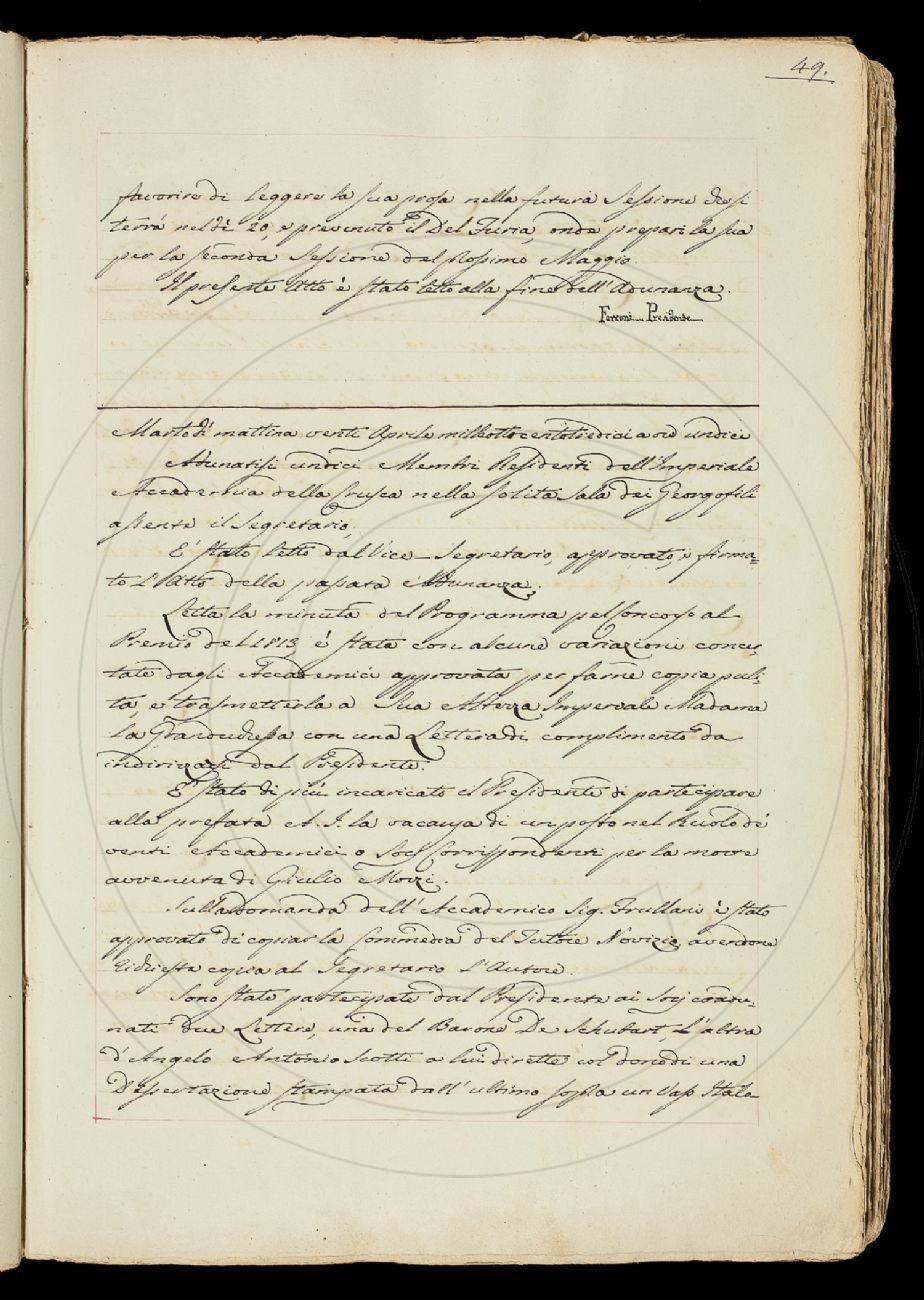 49.
favorire di leggere la sua prosa nella futura Sessione che si
terrà nel dì 20, e prevenuto il Del Furia, onde prepari la sua
per la seconda Sessione del prossimo Maggio.
Il presente Atto è stato letto alla fine dell'Adunanza.
Ferroni Presidente
Martedì mattina venti Aprile milleottocentotredici a ore undici
Adunatisi undici Membri Residenti dell'Imperiale
Accademia della Crusca nella solita Sala dei Georgofili
assente il Segretario.
È stato letto dal Vice-Segretario, approvato, e firma=
to l'Atto della passata Adunanza.
Letta la minuta del Programma pel Concorso al
Premio del 1813 è stata con alcune variazioni concer=
tate dagli Accademici approvata per farne copia puli=
ta, e trasmetterla a Sua Altezza Imperiale Madama
la Granduchessa con una Lettera di complimento da
indirizzarsi dal Presidente.
È stato di più incaricato il Presidente di partecipare
alla prefata A. I. la vacanza di un posto nel Ruolo de'
venti Accademici o Socj Corrispondenti per la morte
avvenuta di Giulio Mozzi.
Sulla domanda dell'Accademico Sig. Frullani è stato
approvato di copiar la Commedia del Tutore Novizio, avendone
richiesta copia al Segretario l'Autore.
Sono state partecipate dal Presidente ai Socj coadu=
nati due Lettere, una del Barone De Schubart, l'altra
d'Angelo Antonio Scotti a lui dirette col dono di una
Dissertazione stampata dall'ultimo sopra un Vaso Italo-